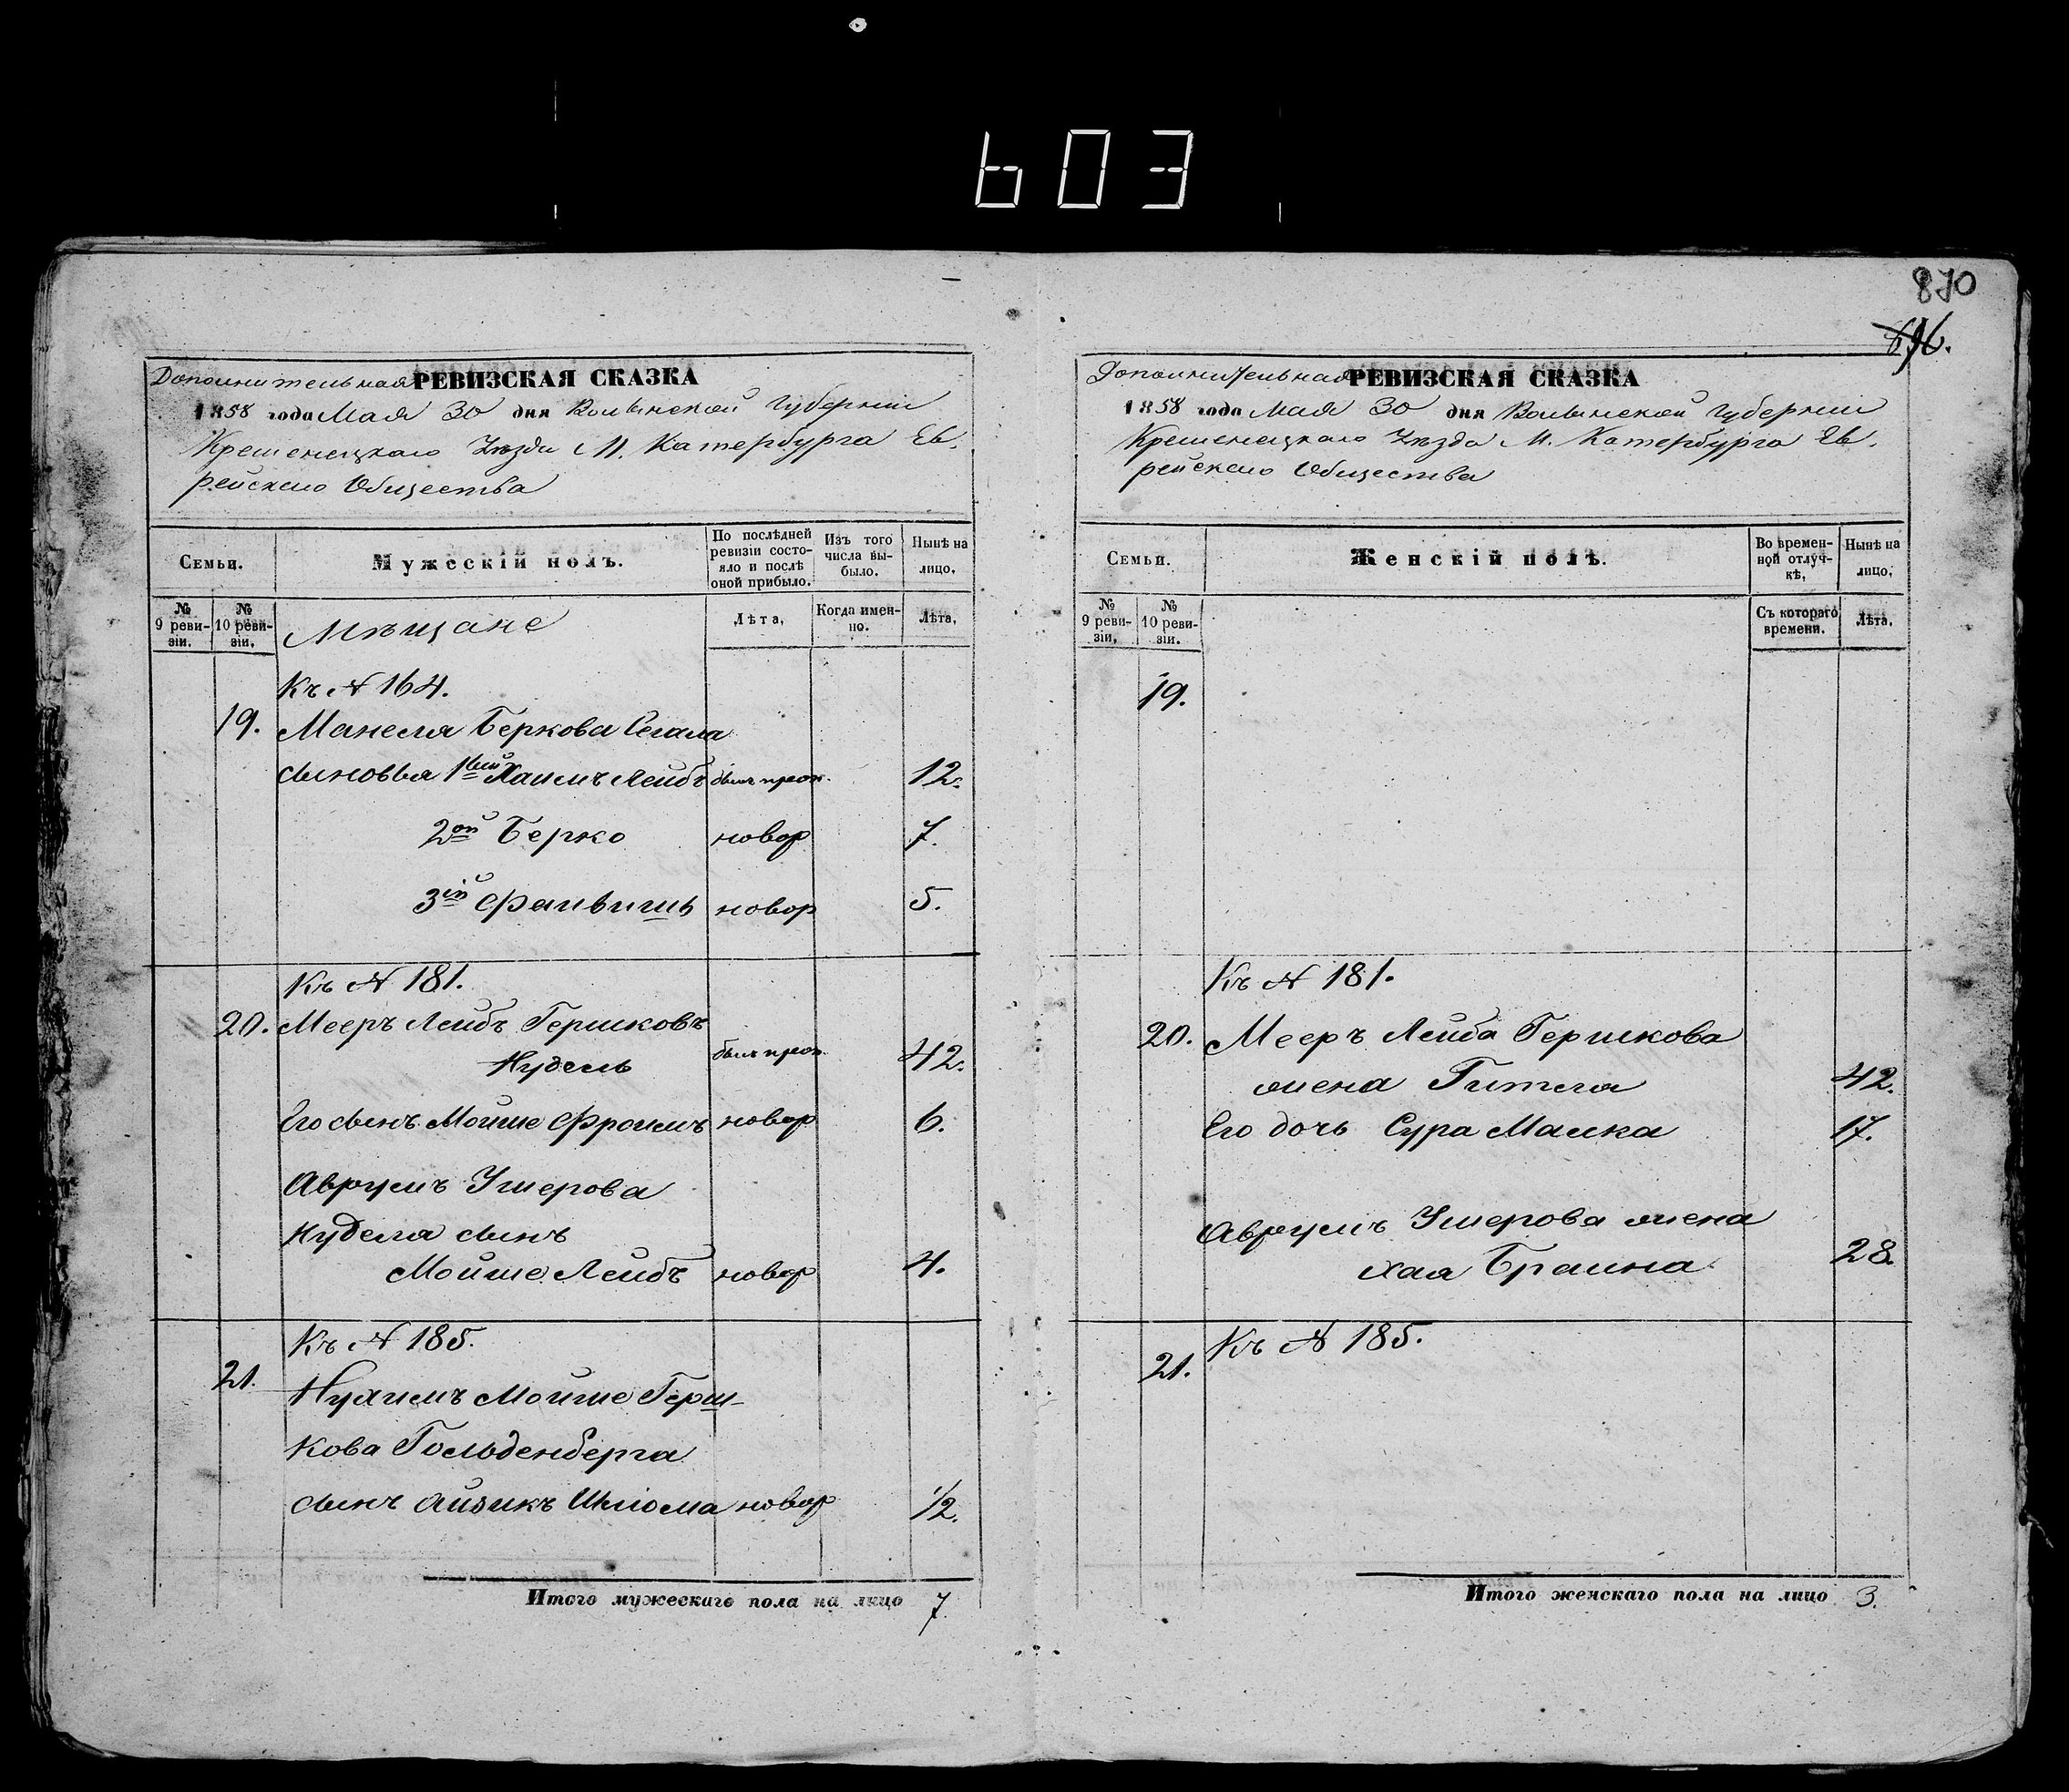 603
870
896.
Дополнительная РЕВИЗСКАЯ СКАЗКА
1858 года Мая 30 дня Волынской Губерніи
Кременецкаго Уѣзда М. Катербурга Ев-
рейскаго Общества
Семьи.
Мужескій полъ.
По послѣдней ревизіи состо-яло и послѣ оной прибыло.
Изъ того числа вы-было.
Нынѣ на лицо.
№ 9 реви-зіи.
№ 10 реви-зіи.
Мѣщане
Лѣта.
Когда имен-но.
Лѣта.
Къ № 164.
19. Манеля Беркова Сегала
сыновья 1ый Хаимъ Лейбъ былъ проп. 12.
2ой Берко новор 7.
3ій Файвишъ новор 5.
Къ № 181.
20. Мееръ Лейбъ Гершковъ
Нудель былъ проп. 42.
Его сынъ Мойше Фроимъ новор 6.
Аврумъ Ушерова
Нуделя сынъ
Мойше Лейбъ новор 4.
Къ № 185.
21. Нухимъ Мойше Герш-
кова Гольденберга
сынъ Айзикъ Шлома новор 1/2.
Итого мужескаго пола на лицо 7.
Дополнительная РЕВИЗСКАЯ СКАЗКА
1858 года Мая 30 дня Волынской Губерніи
Кременецкаго Уѣзда М. Катербурга Ев-
рейскаго Общества
Семьи.
Женскій полъ.
Во времен-ной отлуч-кѣ,
Нынѣ на лицо.
№ 9 реви-зіи.
№ 10 реви-зіи.
Съ котораго времени.
Лѣта.
19.
Къ № 181.
20. Мееръ Лейба Гершкова
жена Гитля 42.
Его дочь Сура Малка 17.
Аврумъ Ушерова жена
Хая Браина 28.
Къ № 185.
21.
Итого женскаго пола на лицо 3.